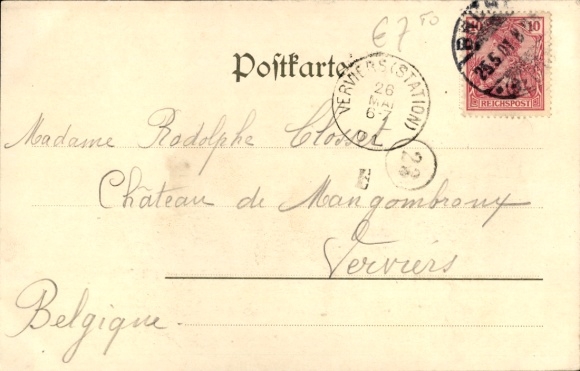 €7 50
10
REICHSPOST
25.5.01.8
Postkarte
VERVIERS (STATION)
26
MAI
6-7
22
Madame Rodolphe Closset
Château de Mangombroux
Verviers
Belgique